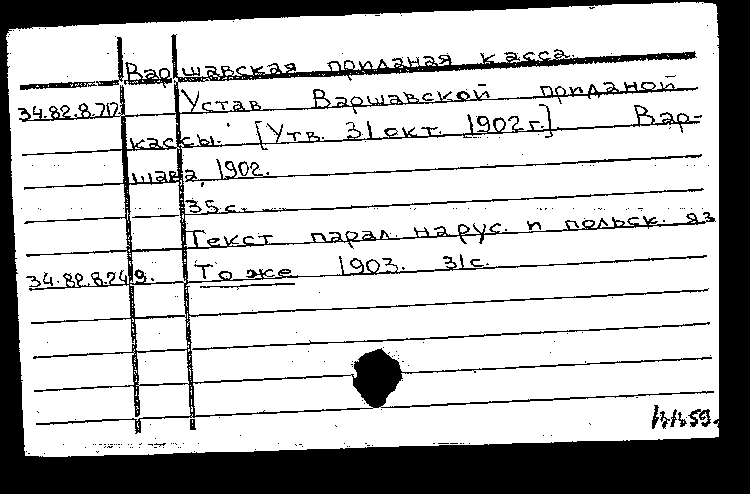 Варшавская приданая касса.
34.82.8.717 Устав Варшавской приданой
кассы. [Утв. 31 окт. 1902 г.] Вар-
шава, 1902.
35 с.
Текст парал. на рус. и польск. яз
34.82.8.249. То же 1903. 31 с.